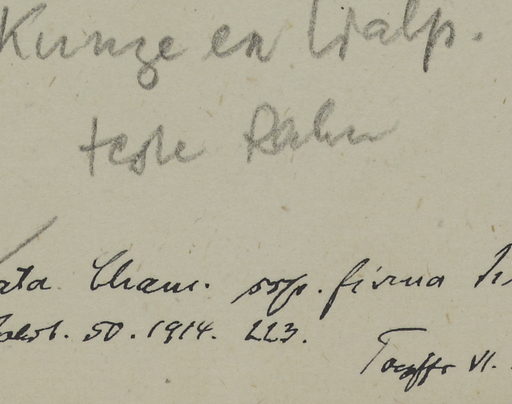 Kunze en Walp.
teste Rahn
ata Cham. ssp. firma
50. 1914. 223.
Toepffr VI.